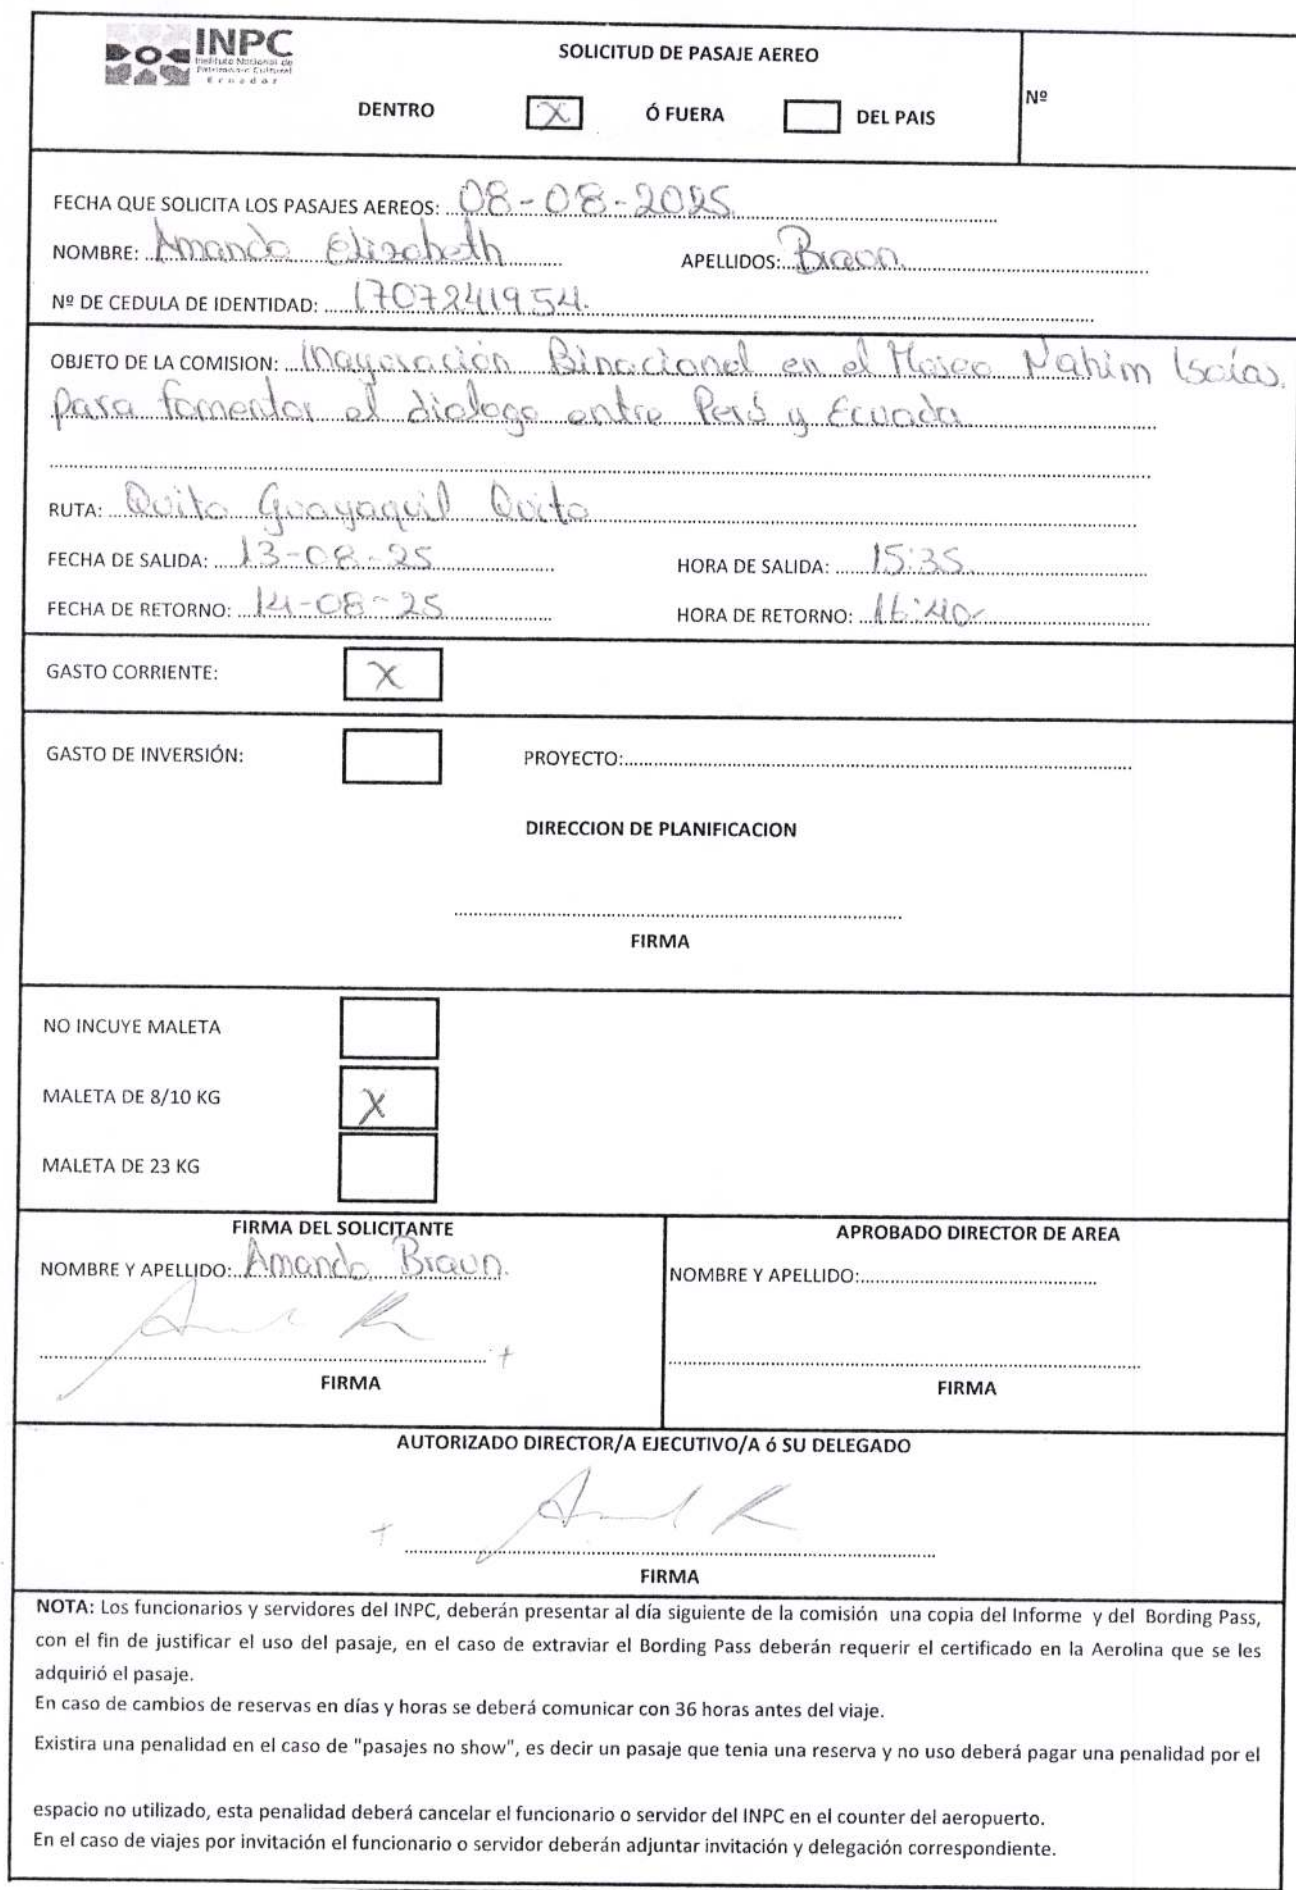 INPC
Instituto Nacional de
Patrimonio Cultural
Ecuador
SOLICITUD DE PASAJE AEREO
Nº
DENTRO X Ó FUERA DEL PAIS
FECHA QUE SOLICITA LOS PASAJES AEREOS: 08-08-2025
NOMBRE: Amanda Elizabeth APELLIDOS: Braun.
Nº DE CEDULA DE IDENTIDAD: 1707241954.
OBJETO DE LA COMISION: Inaguración Binacional en el Museo Nahim Isaías.
para fomentar el dialogo entre Perú y Ecuado
RUTA: Quito Guayaquil Quito
FECHA DE SALIDA: 13-08-25 HORA DE SALIDA: 15:35
FECHA DE RETORNO: 14-08-25 HORA DE RETORNO: 16:40
GASTO CORRIENTE: X
GASTO DE INVERSIÓN: PROYECTO:
DIRECCION DE PLANIFICACION
FIRMA
NO INCUYE MALETA
MALETA DE 8/10 KG X
MALETA DE 23 KG
FIRMA DEL SOLICITANTE
NOMBRE Y APELLIDO: Amanda Braun.
FIRMA
APROBADO DIRECTOR DE AREA
NOMBRE Y APELLIDO:
FIRMA
AUTORIZADO DIRECTOR/A EJECUTIVO/A ó SU DELEGADO
FIRMA
NOTA: Los funcionarios y servidores del INPC, deberán presentar al día siguiente de la comisión una copia del Informe y del Bording Pass,
con el fin de justificar el uso del pasaje, en el caso de extraviar el Bording Pass deberán requerir el certificado en la Aerolina que se les
adquirió el pasaje.
En caso de cambios de reservas en días y horas se deberá comunicar con 36 horas antes del viaje.
Existira una penalidad en el caso de "pasajes no show", es decir un pasaje que tenia una reserva y no uso deberá pagar una penalidad por el
espacio no utilizado, esta penalidad deberá cancelar el funcionario o servidor del INPC en el counter del aeropuerto.
En el caso de viajes por invitación el funcionario o servidor deberán adjuntar invitación y delegación correspondiente.